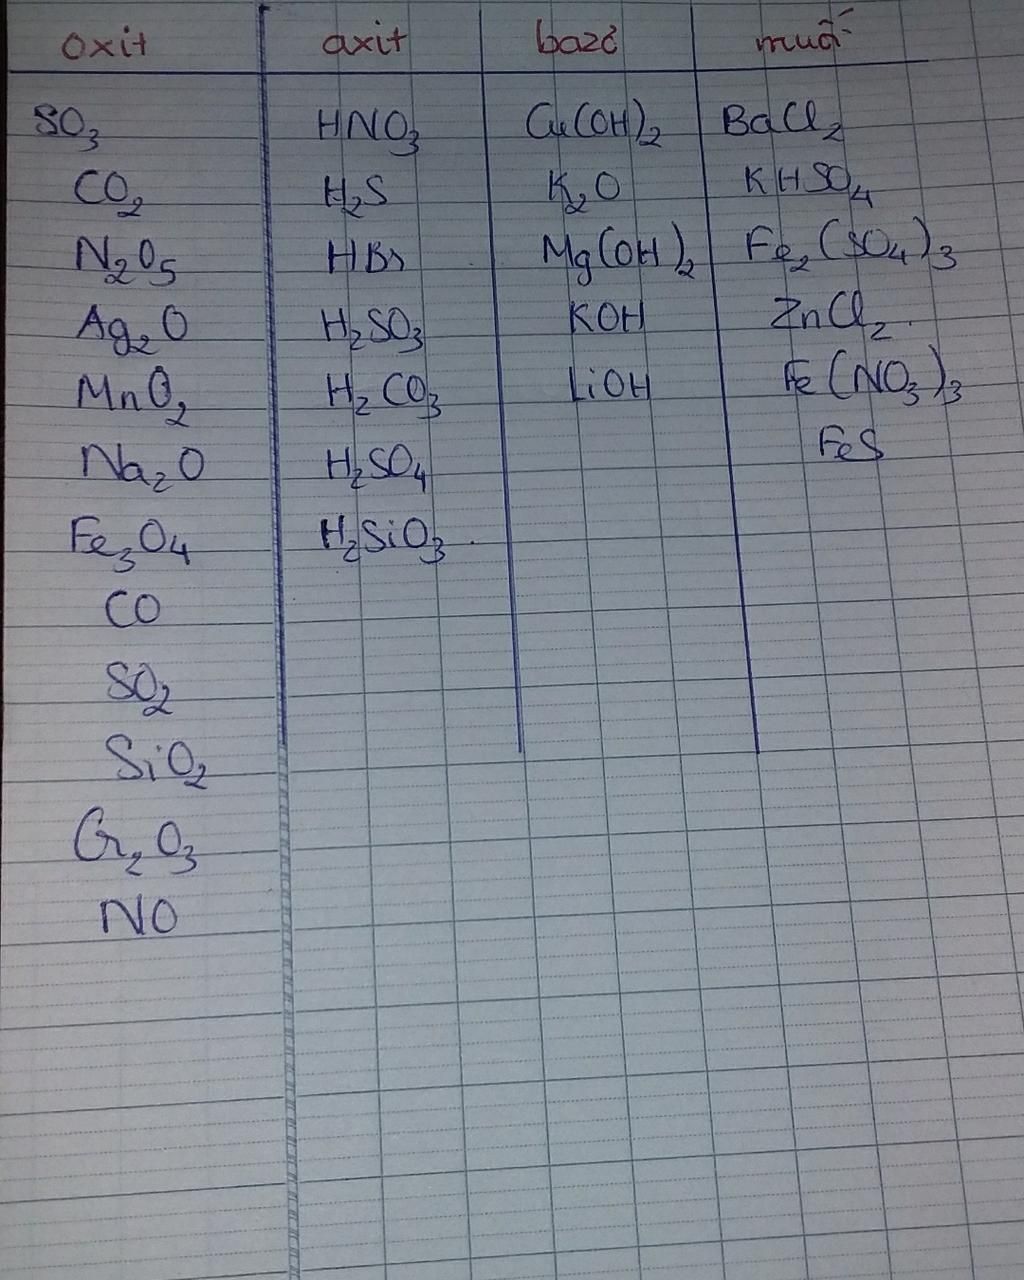 oxit axit bazơ muối
SO3 HNO3 Cu(OH)2 BaCl2
CO2 H2S K2O KHSO4
N2O5 HBr Mg(OH)2 Fe2(SO4)3
Ag2O H2SO3 KOH ZnCl2
MnO2 H2CO3 LiOH Fe(NO3)3
Na2O H2SO4 FeS
Fe3O4 H2SiO3
CO
SO2
SiO2
Cr2O3
NO